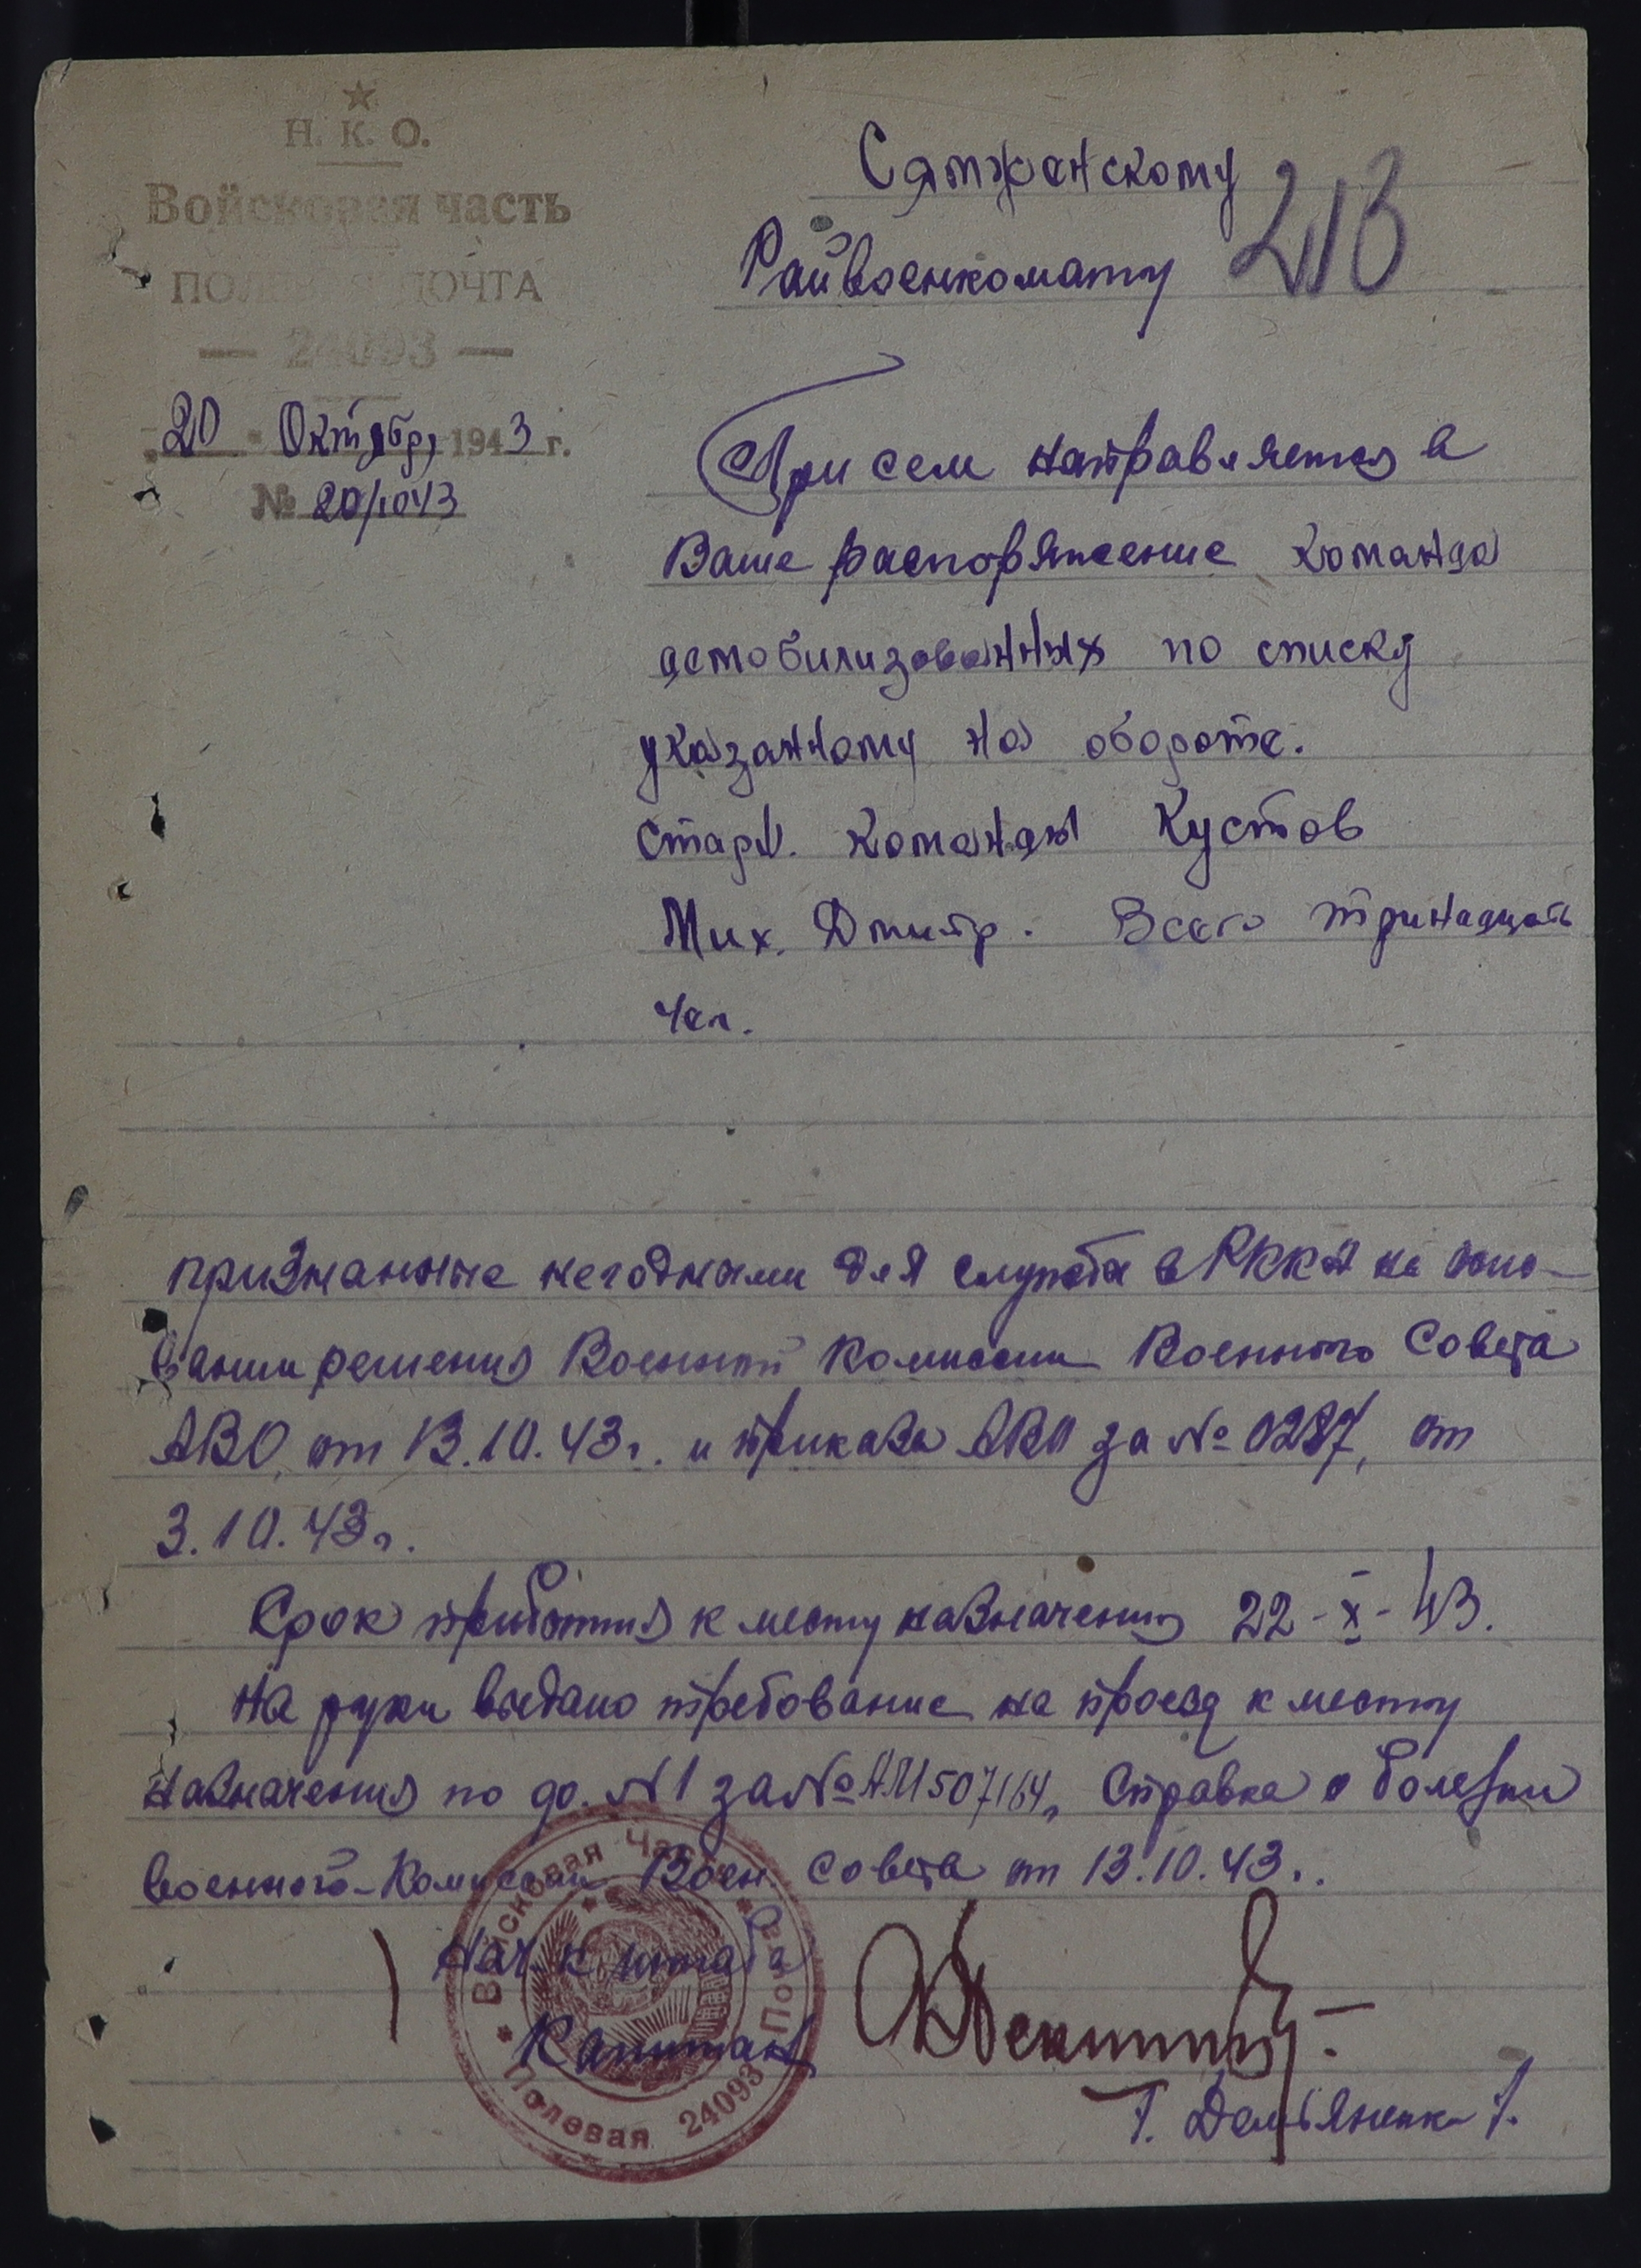 Н. К. О.
Войсковая часть
ПОЛЕВАЯ ПОЧТА
— 24093 —
20 Октября 1943 г.
№ 20/1043
Сямженскому
Райвоенкомату
213
При сем направляется в
Ваше распоряжение команда
демобилизованных по списку
указанному на обороте.
Старш. команды Кустов
Мих. Дмитр. Всего тринадцать
чел.
признанные негодными для службы в РККА на осно-
вании решения Военной комиссии Военного Совета
АВО, от 13.10.43 г. и приказа АВО за № 0287, от
3.10.43 г.
Срок прибытия к месту назначения 22-X-43.
На руки выдано требование на проезд к месту
назначения по ф. №1 за № 507164, Справка о болезни
военного-комиссии Воен. Совета от 13.10.43.
Нач-к штаба
Капитан
Г. Демьяненк
Войсковая Часть
Полевая Почта 24093